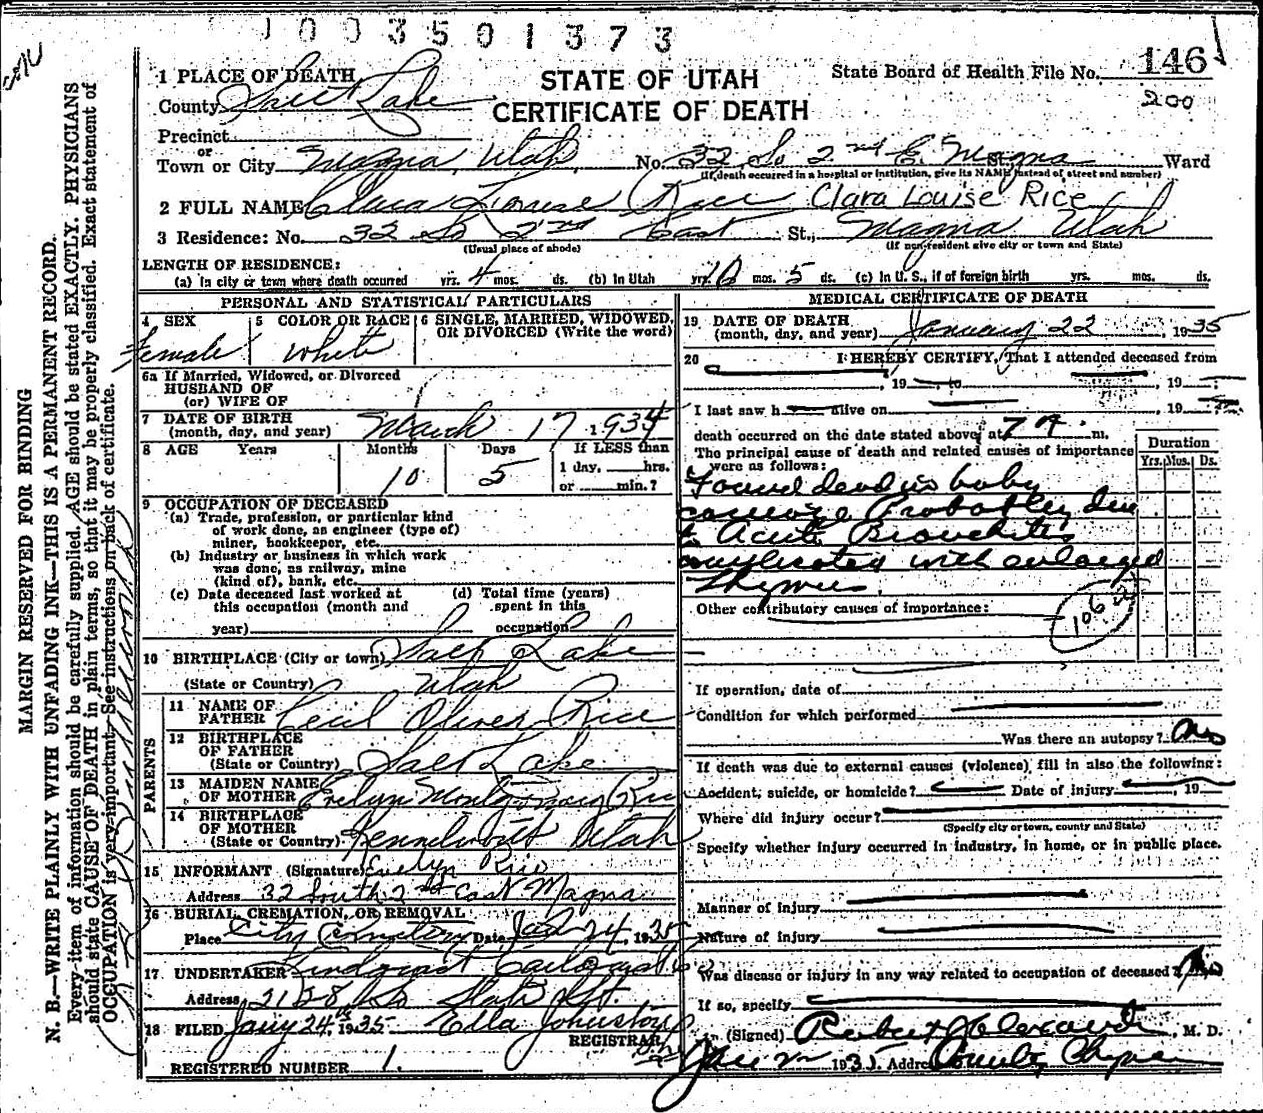 1003501373
STATE OF UTAH
CERTIFICATE OF DEATH
State Board of Health File No. 146
200
MARGIN RESERVED FOR BINDING
N. B.—WRITE PLAINLY WITH UNFADING INK—THIS IS A PERMANENT RECORD.
Every item of information should be carefully supplied. AGE should be stated EXACTLY. PHYSICIANS
should state CAUSE OF DEATH in plain terms, so that it may be properly classified. Exact statement of
OCCUPATION is very important. See instructions on back of certificate.
1 PLACE OF DEATH
County Salt Lake
Precinct
or
Town or City Magna, Utah, No. 32 So 2nd E. Magna St. Ward
(If death occurred in a hospital or institution, give its NAME instead of street and number)
2 FULL NAME Clara Louise Rice Clara Louise Rice
3 Residence: No. 32 So 2nd East St., Magna Utah
(Usual place of abode) (If non-resident give city or town and State)
LENGTH OF RESIDENCE:
(a) In city or town where death occurred yrs. 4 mos. ds. (b) In Utah yrs. 10 mos. 5 ds. (c) In U. S., if of foreign birth yrs. mos. ds.
PERSONAL AND STATISTICAL PARTICULARS
4 SEX
female
5 COLOR OR RACE
White
6 SINGLE, MARRIED, WIDOWED,
OR DIVORCED (Write the word)
6a If Married, Widowed, or Divorced
HUSBAND OF
(or) WIFE OF
7 DATE OF BIRTH
(month, day, and year) March 17 1934
8 AGE Years Months Days If LESS than
1 day, hrs.
10 5 or min.?
9 OCCUPATION OF DECEASED
(a) Trade, profession, or particular kind
of work done, as engineer (type of)
miner, bookkeeper, etc.
(b) Industry or business in which work
was done, as railway, mine
(kind of), bank, etc.
(c) Date deceased last worked at
this occupation (month and
year)
(d) Total time (years)
spent in this
occupation
10 BIRTHPLACE (City or town) Salt Lake
(State or Country) Utah
PARENTS
11 NAME OF
FATHER Cecil Oliver Rice
12 BIRTHPLACE
OF FATHER
(State or Country) Salt Lake
13 MAIDEN NAME
OF MOTHER Evelyn Montgomery Rice
14 BIRTHPLACE
OF MOTHER
(State or Country) Utah
15 INFORMANT (Signature) Evelyn Rice
Address 32 South 2nd East Magna
16 BURIAL, CREMATION, OR REMOVAL
Place City Cemetery Date Jan 24, 1935
17 UNDERTAKER Lindquist
Address 2128 So State St.
18 FILED Jany 24th 1935 Ella Johnston
REGISTRAR
REGISTERED NUMBER 1.
MEDICAL CERTIFICATE OF DEATH
19 DATE OF DEATH
(month, day, and year) January 22, 1935
20 I HEREBY CERTIFY, That I attended deceased from
, 19 to , 19
I last saw h alive on , 19
death occurred on the date stated above, at 7 A. m.
The principal cause of death and related causes of importance
were as follows:
Duration
Yrs. Mos. Ds.
Found dead in baby
carriage Probably due
to Acute Bronchitis
complicated with enlarged
Thymus.
Other contributory causes of importance:
106
If operation, date of
Condition for which performed
Was there an autopsy? No
If death was due to external causes (violence), fill in also the following:
Accident, suicide, or homicide? Date of injury , 19
Where did injury occur?
(Specify city or town, county and State)
Specify whether injury occurred in industry, in home, or in public place.
Manner of injury
Nature of injury
Was disease or injury in any way related to occupation of deceased? No
If so, specify
(Signed) Robert J Alexander M. D.
1935. Address County